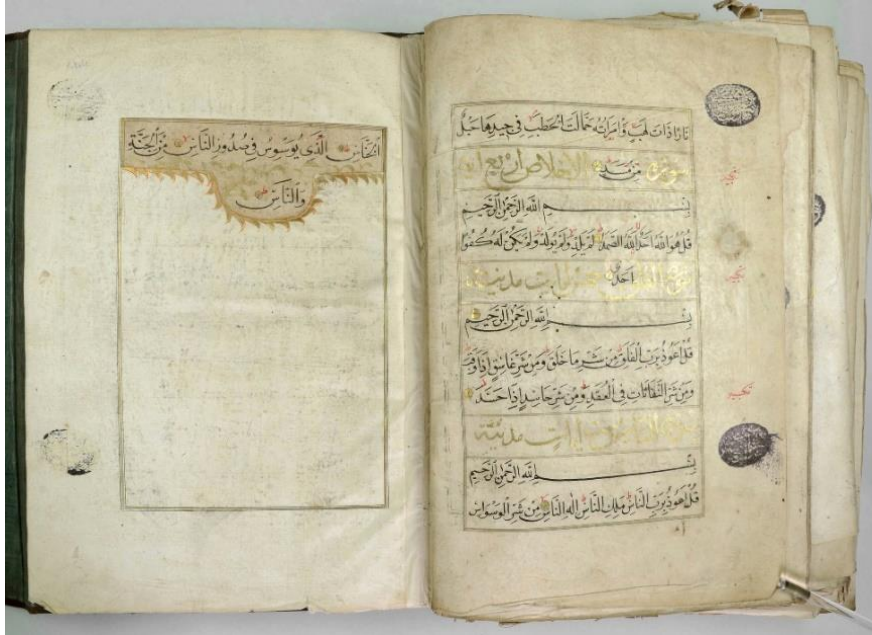 نارا ذات لهب وامراته حمالت الحطب في جيدها حبل
من مسد سورة الاخلاص اربع
بسم الله الرحمن الرحيم
قل هو الله احد الله الصمد لم يلد ولم يولد ولم يكن له كفوا
احد سورة
بسم الله الرحمن الرحيم
قل اعوذ برب الفلق من شر ما خلق ومن شر غاسق اذا وقب
ومن شر النفاثات في العقد ومن شر حاسد اذا حسد
ايات مدنية
بسم الله الرحمن الرحيم
قل اعوذ برب الناس ملك الناس اله الناس من شر الوسواس
الخناس الذي يوسوس في صدور الناس من الجنة
والناس